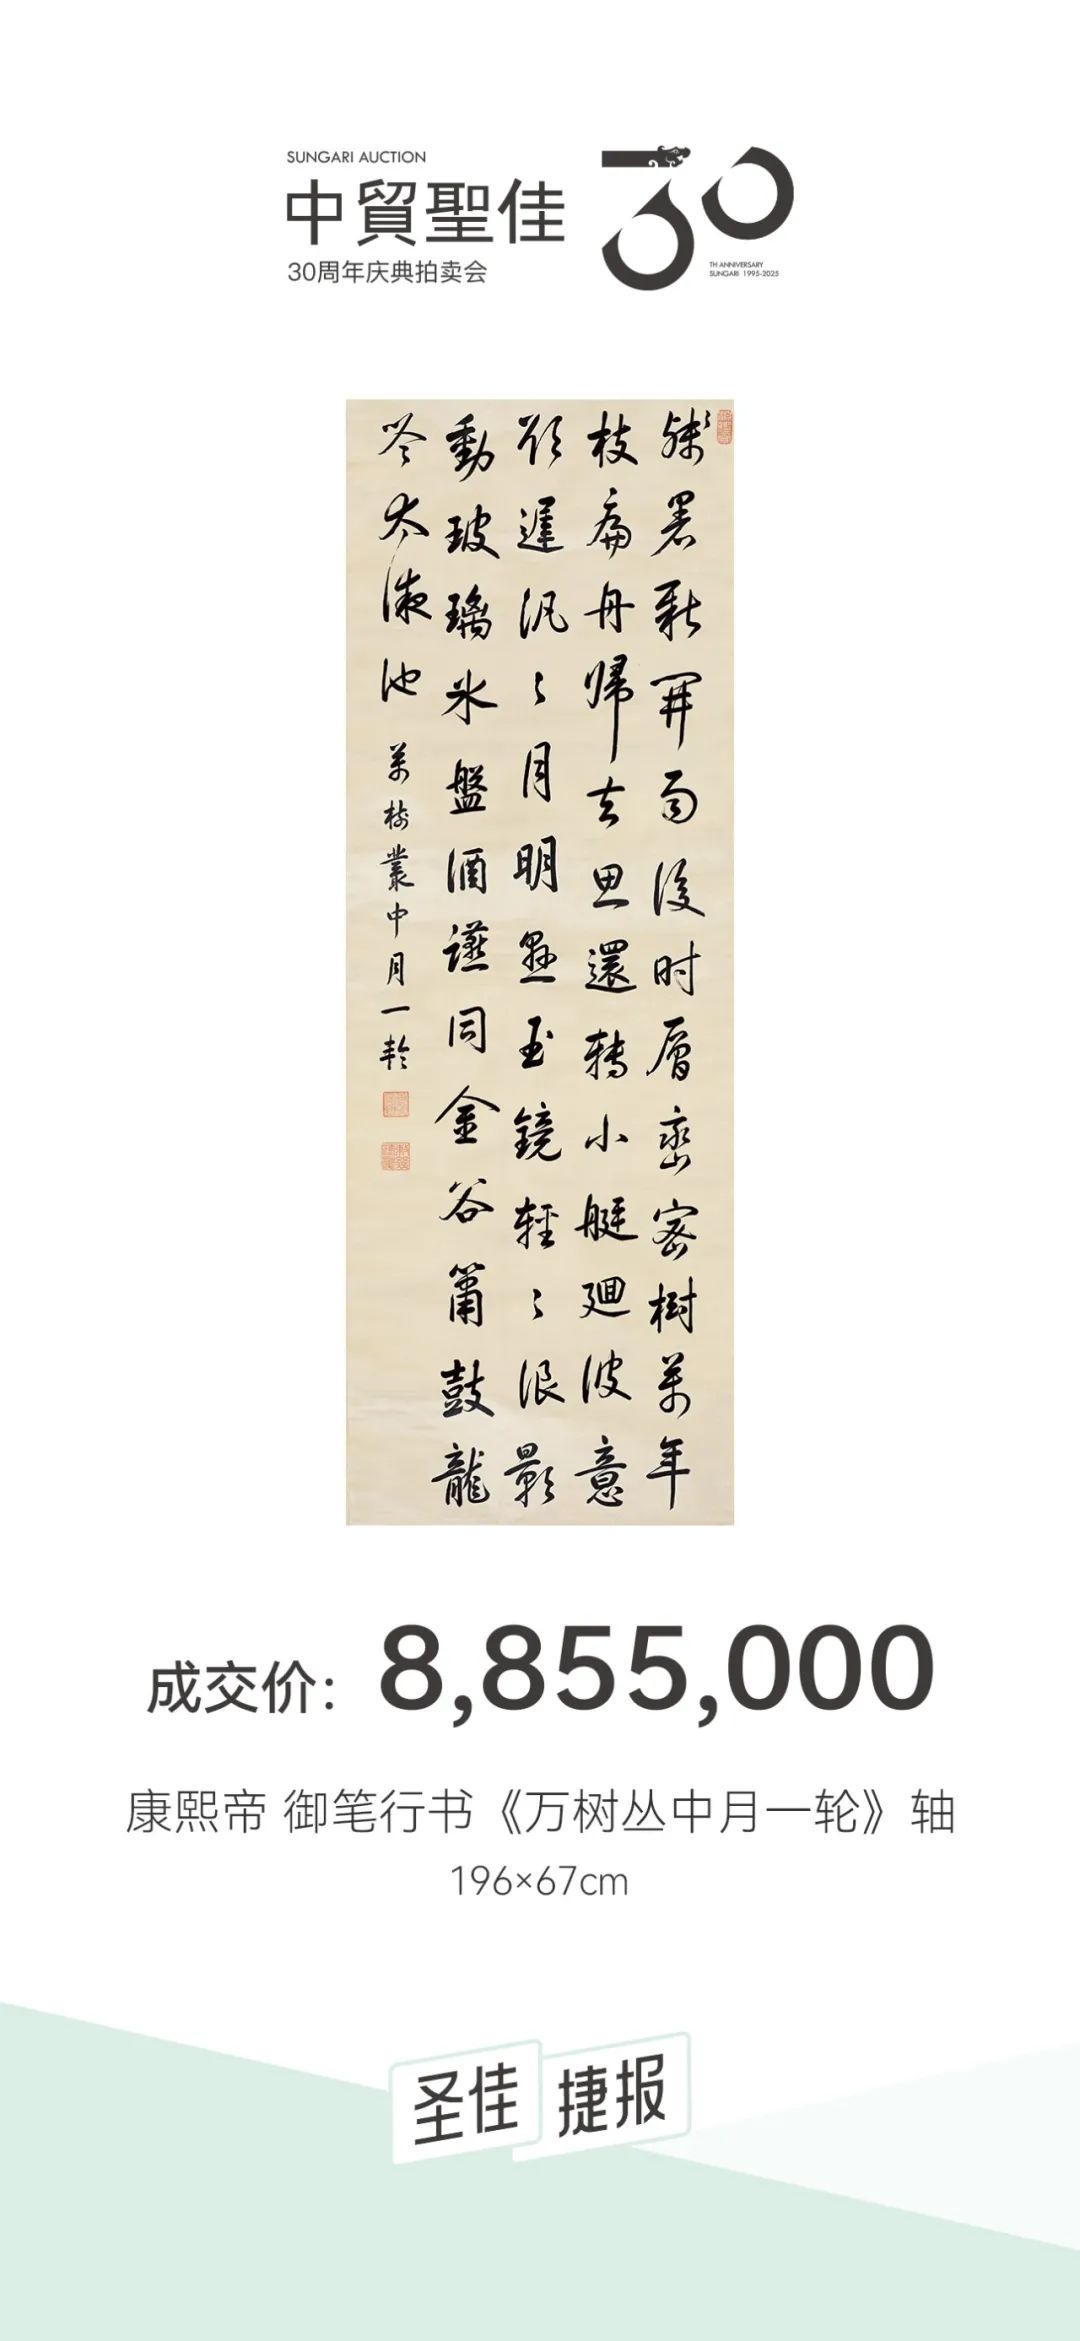 SUNGARI AUCTION
中貿聖佳
30周年庆典拍卖会
30
TH ANNIVERSARY
SUNGARI 1995-2025
殘暑新開雨後时層巒密樹萬年
枝扁舟帰去思還轉小艇廻波意
欲遲汎〻月明懸玉鏡輕〻浪影
動玻璃氷盤酒讌同金谷簫鼓龍
吟太液池 萬樹叢中月一輪
成交价：8,855,000
康熙帝 御笔行书《万树丛中月一轮》轴
196×67cm
圣佳 捷报